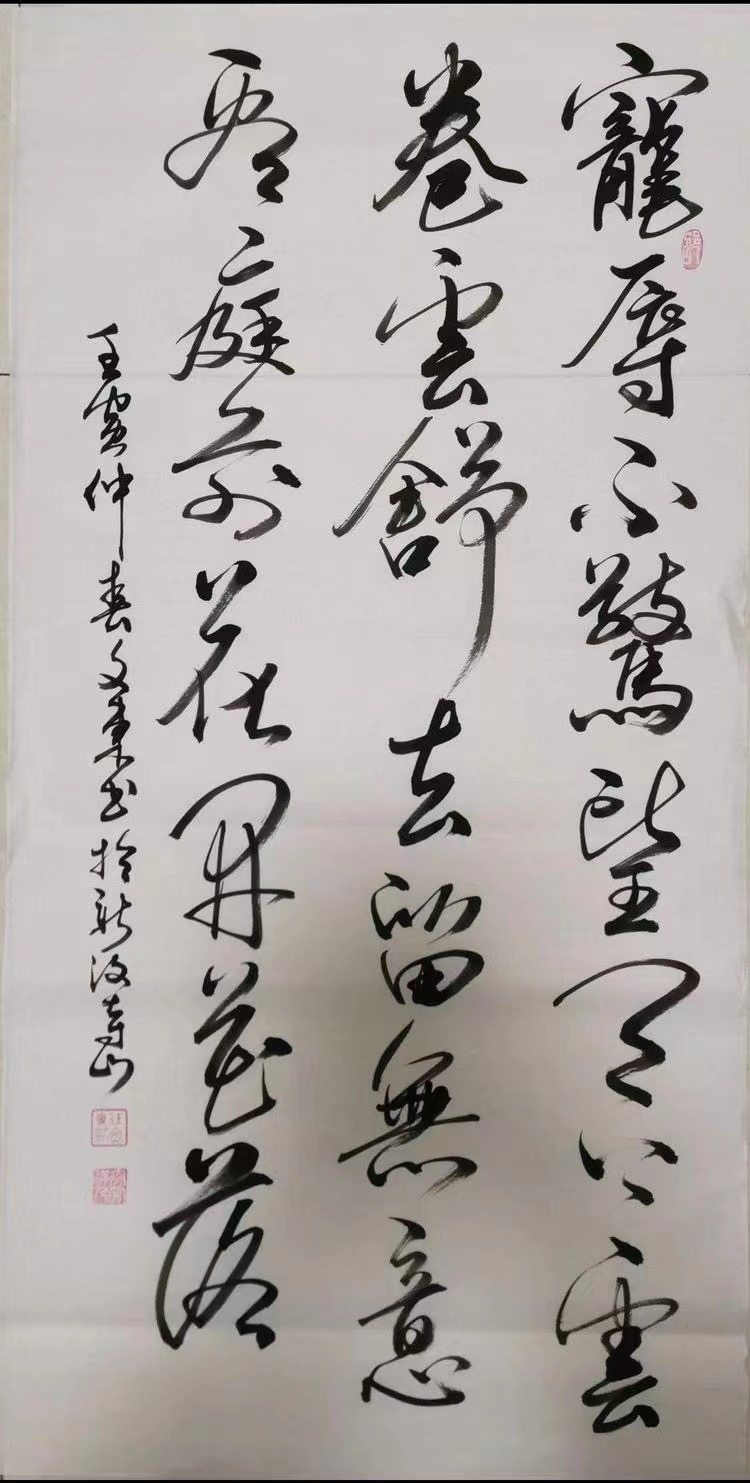 寵辱不驚望天上雲
卷雲舒去留無意
看庭前花開花落
壬寅仲春文東書於新汶